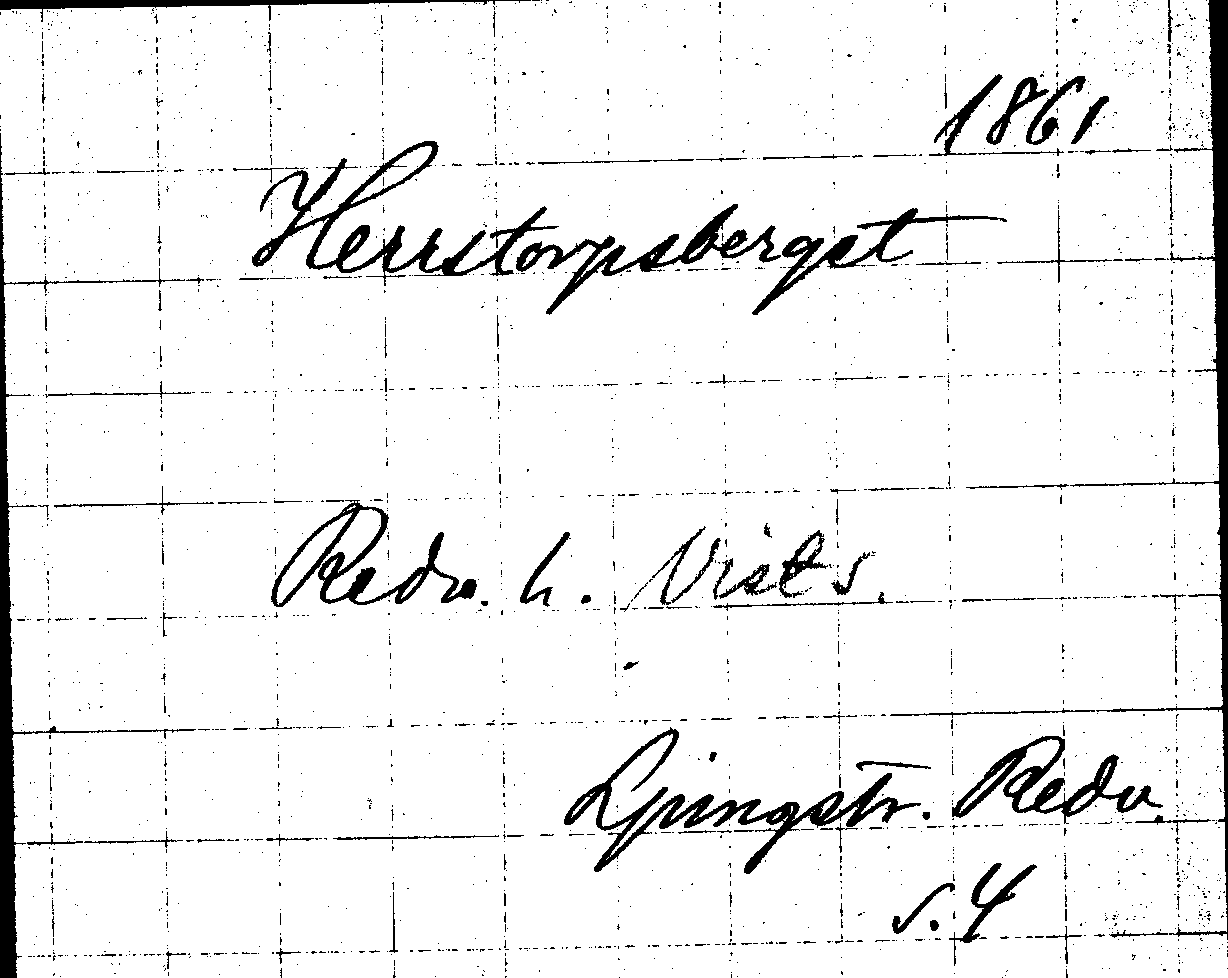 1861
Herrstorpsberget
Redv. h. Vists.
Ljungstr. Redv.
s. 4